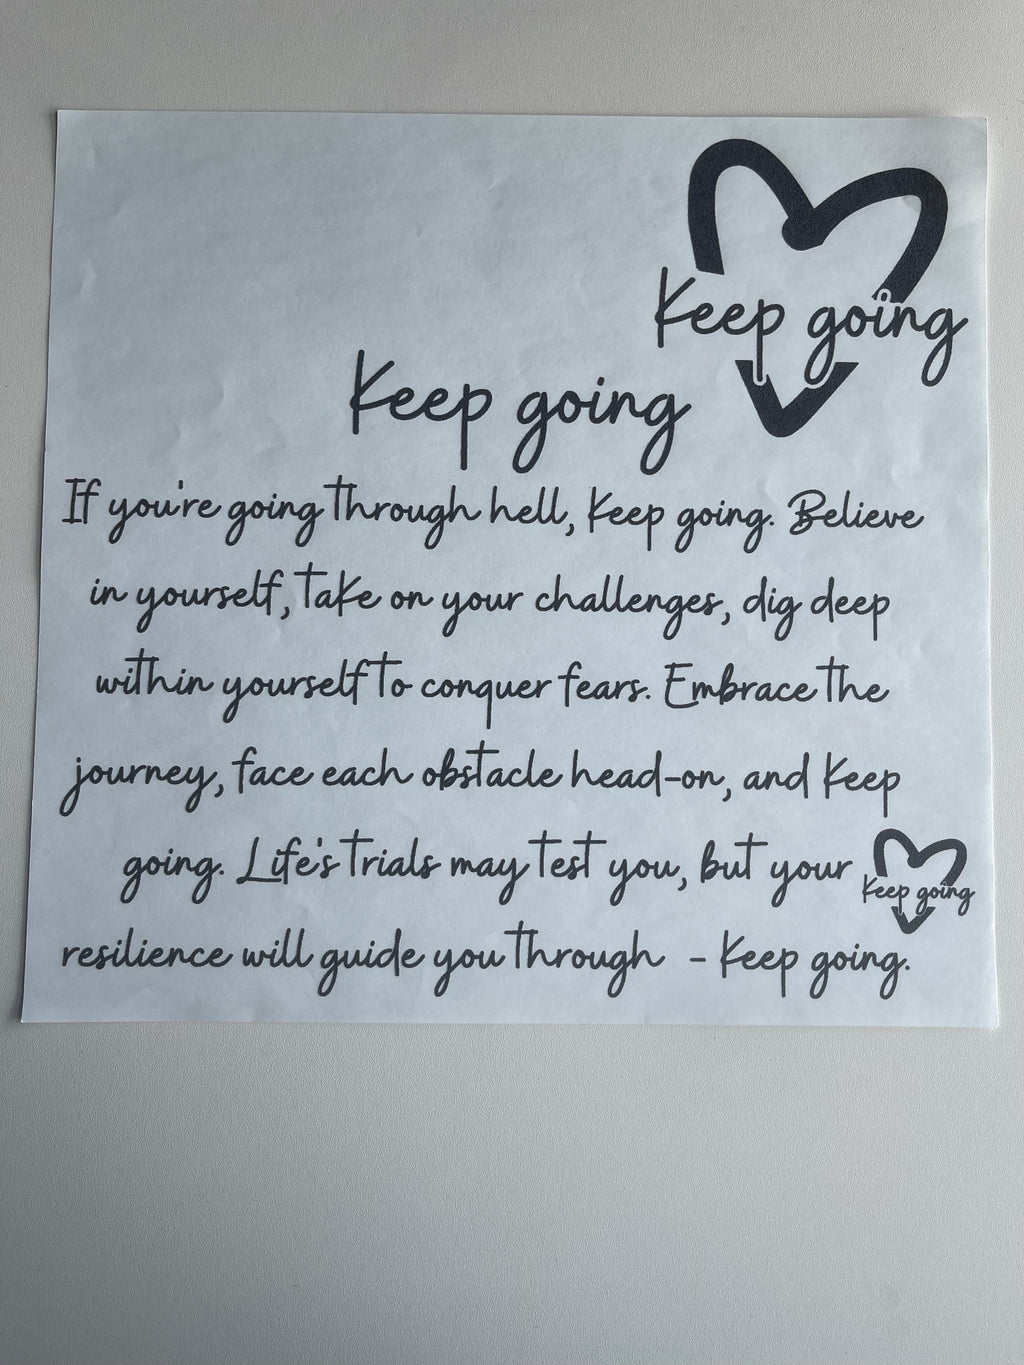 Keep going
Keep going
If you're going through hell, Keep going. Believe
in yourself, take on your challenges, dig deep
within yourself to conquer fears. Embrace the
journey, face each obstacle head-on, and Keep
going. Life's trials may test you, but your
Keep going
resilience will guide you through - Keep going.